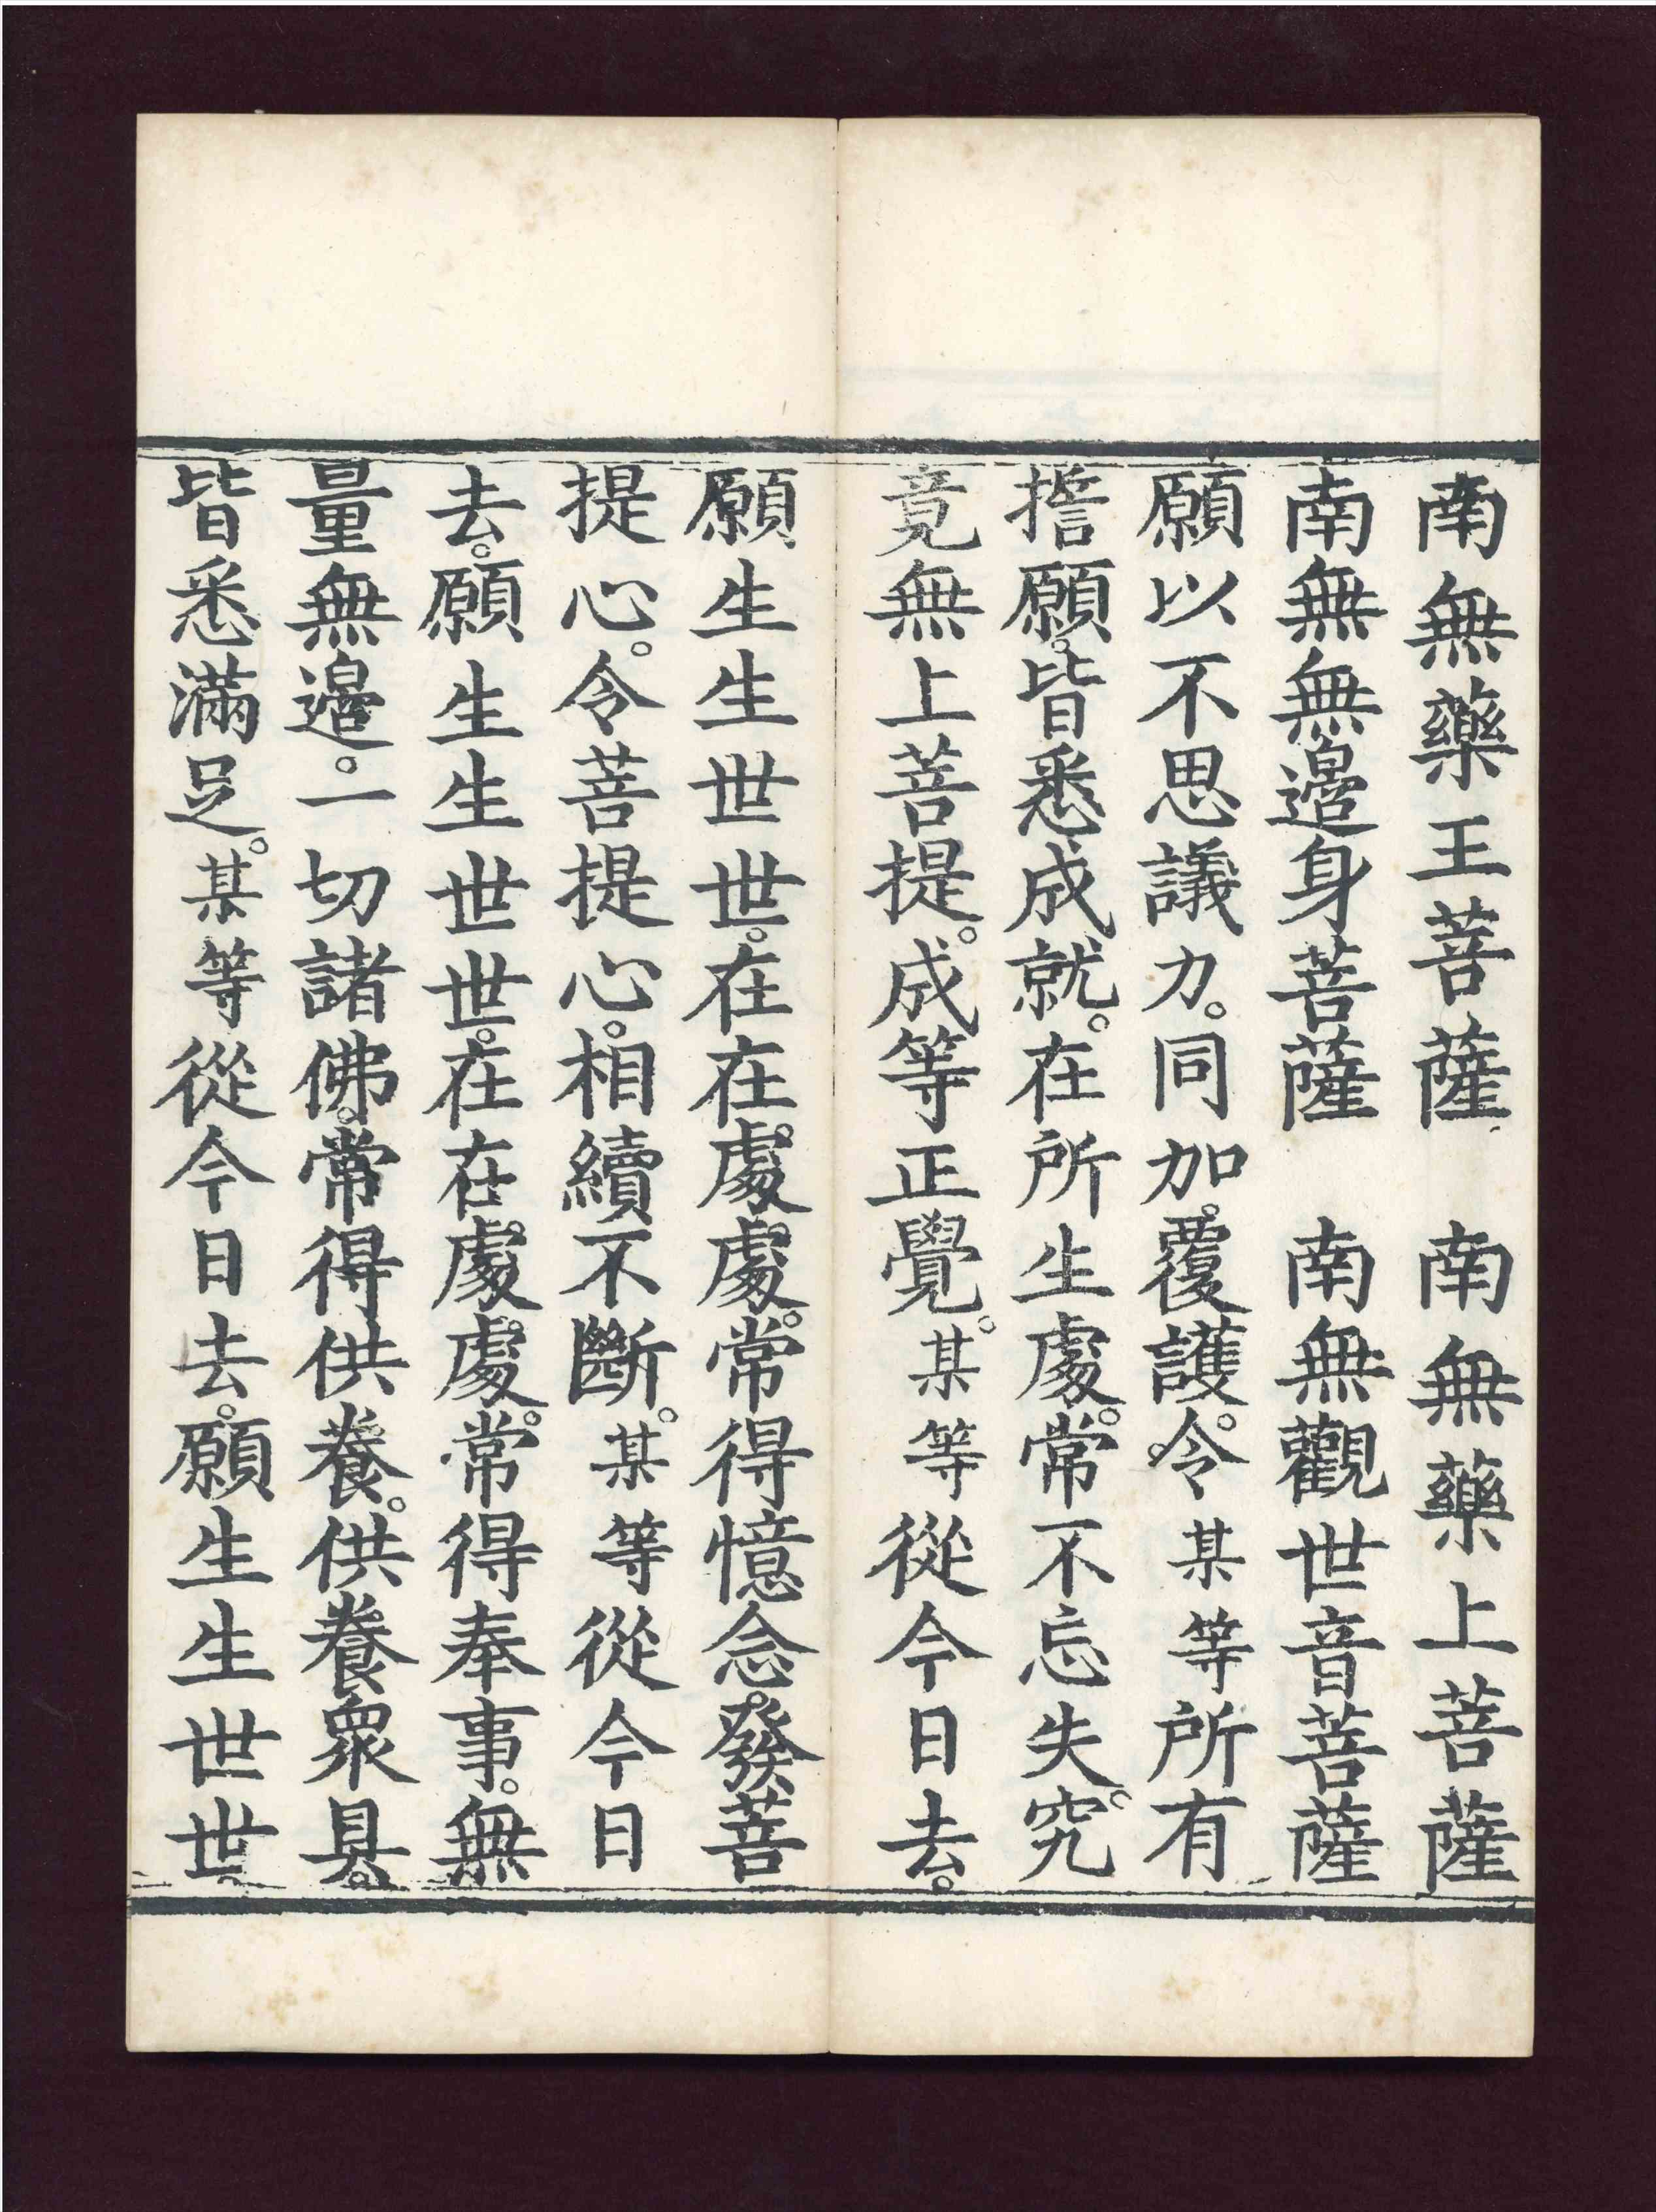 南無藥王菩薩　南無藥上菩薩
南無無邊身菩薩　南無觀世音菩薩
願以不思議力。同加。覆護。令某等所有
誓願。皆悉成就。在所生處。常不忘失。究
竟無上菩提。成等正覺。某等從今日去。
願生生世世。在在處處。常得憶念。發菩
提心。令菩提心。相續不斷。某等從今日
去。願生生世世。在在處處。常得奉事。無
量無邊。一切諸佛。常得供養。供養眾具。
皆悉滿足。某等從今日去。願生生世世。